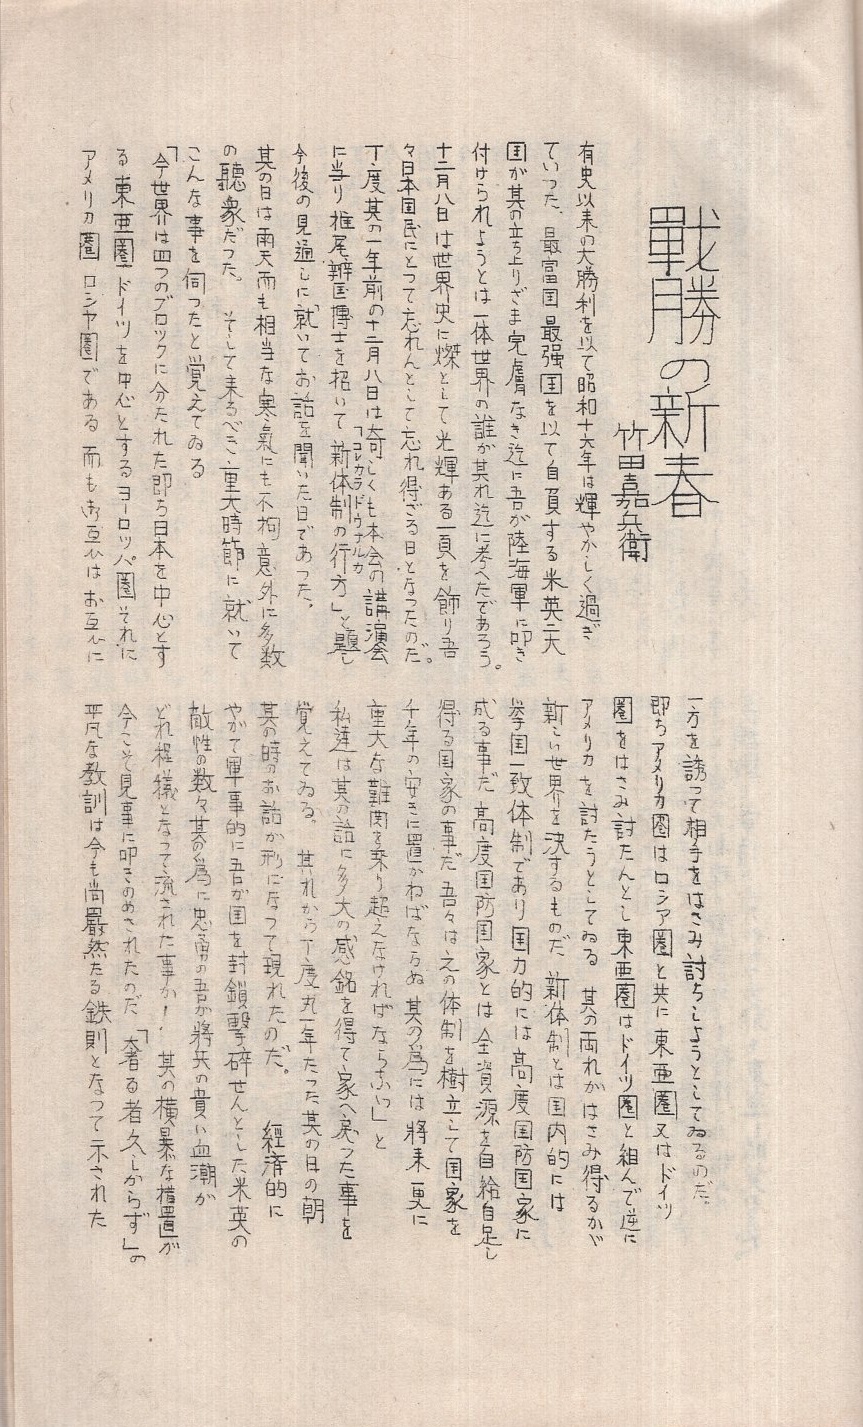 戰勝の新春
竹田嘉兵衛
有史以来の大勝利を以て昭和十六年は輝やかしく過ぎ
ていつた、最富国最強国を以て自負する米英二大
国が其の立ち上りざま完膚なき迄に吾が陸海軍に叩き
付けられようとは一体世界の誰が其れ迄に考へたであろう。
十二月八日は世界史に燦として光輝ある一頁を飾り吾
々日本国民にとつて忘れんとして忘れ得ざる日となつたのだ。
丁度其の一年前の十二月八日は奇しくも本会の講演会
に当り椎尾辨匡博士を招いて「新体制の行方」と題し
コレカラドウナルカ
今後の見通しに就いてお話を聞いた日であつた。
其の日は雨天而も相当な寒氣にも不拘意外に多数
の聽衆だつた。そして来るべき重大時節に就いて
こんな事を伺つたと覚えてゐる
「今世界は四つのブロックに分たれた即ち日本を中心とす
る東亜圏ドイツを中心とするヨーロッパ圏それに
アメリカ圏ロシヤ圏である而もお互ひはお互ひに
一方を誘つて相手をはさみ討ちしようとしてゐるのだ。
即ちアメリカ圏はロシア圏と共に東亜圏又はドイツ
圏をはさみ討たんとし東亜圏はドイツ圏と組んで逆に
アメリカを討たうとしてゐる其の両れがはさみ得るかゞ
新しい世界を決するものだ新体制とは国内的には
挙国一致体制であり国力的には高度国防国家に
成る事だ高度国防国家とは全資源を自給自足し
得る国家の事だ吾々は之の体制を樹立して国家を
千年の安きに置かねばならぬ其の為には將来更に
重大な難関を乗り超えなければならない」と
私達は其の話に多大の感銘を得て家へ戻つた事を
覚えてゐる。其れから丁度丸一年たつた其の日の朝
其の時のお話が形になつて現れたのだ。経済的に
やがて軍事的に吾が国を封鎖撃碎せんとした米英の
敵性の数々其の為に忠勇の吾が將兵の貴い血潮が
どれ程犠となつて流された事か！其の横暴な措置が
今こそ見事に叩きのめされたのだ「奢る者久しからず」の
平凡な教訓は今も尚嚴然たる鉄則となつて示された